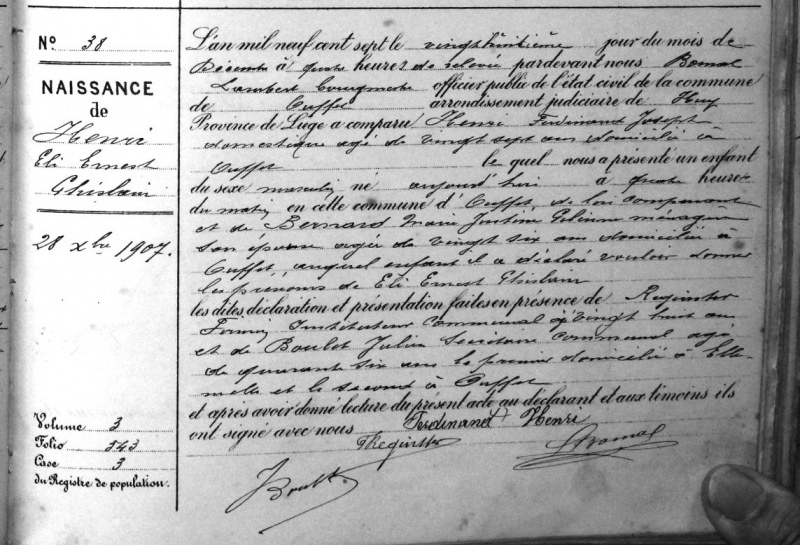 N° 38
NAISSANCE
de
Henri
Eli Ernest
Ghislain
28 xbre 1907.
Volume 3
Folio 543
Case 3
du Registre de population.
L'an mil neuf cent sept le vingt huitième jour du mois de
Décembre à quatre heures de relevée pardevant nous Bomal
Lambert bourgmestre officier public de l'état civil de la commune
de Ouffet arrondissement judiciaire de Huy
Province de Liége a comparu Henri Ferdinand Joseph
domestique agé de vingt sept ans domicilié à
Ouffet le quel nous a présenté un enfant
du sexe masculin né aujourd'hui à quatre heures
du matin en cette commune d'Ouffet, de lui comparant
et de Bernard Marie Justine ménagère
son épouse agée de vingt six ans domiciliée à
Ouffet, auquel enfant il a déclaré vouloir donner
les prénoms de Eli Ernest Ghislain
les dites déclaration et présentation faites en présence de
Instituteur communal vingt huit ans
et de Boulet Julien Secrétaire communal agé
de quarante six ans le premier domicilié à Elle-
melle et le second à Ouffet
et après avoir donné lecture du présent acte au déclarant et aux témoins ils
ont signé avec nous Ferdinand Henri
LBomal
JBoulet